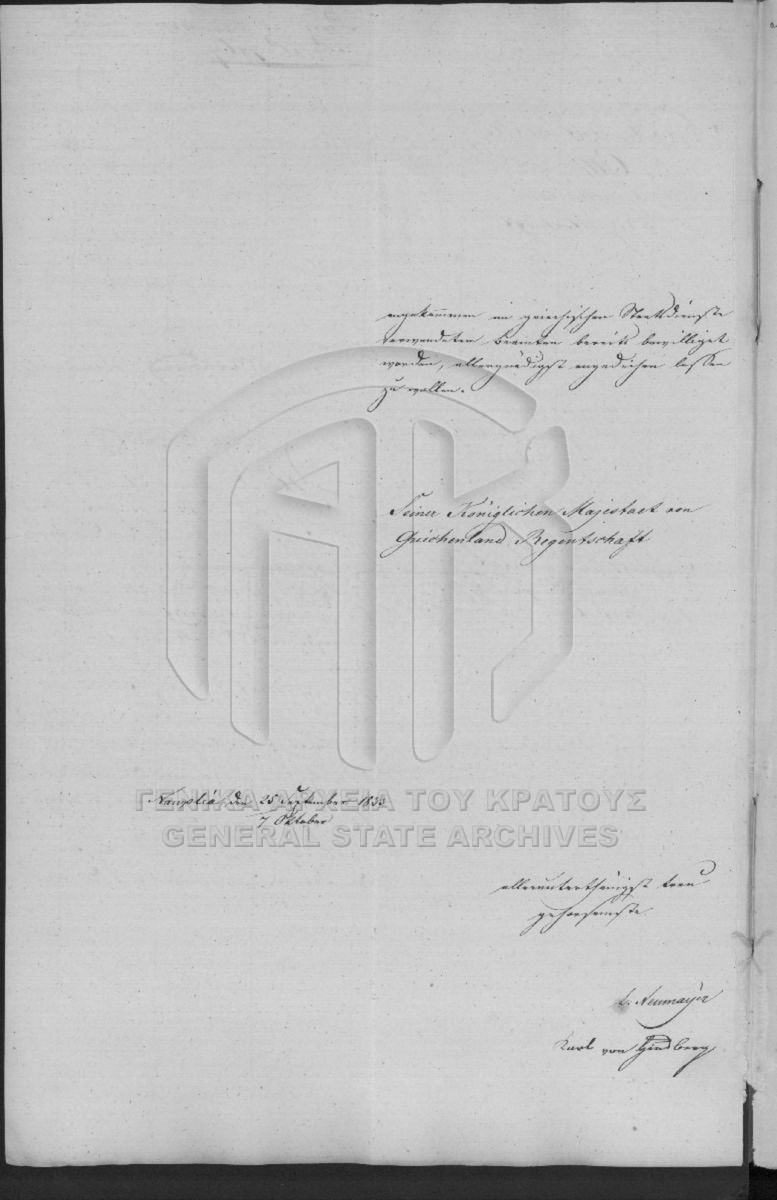 angekommen im griechischen Staatsdienste
verwendeten Beamten bereits bewilliget
worden, allergnädigst angedeihen lassen
zu wollen.
Seiner Königlichen Majestaet von
Griechenland Regentschaft
Nauplia, den 25 September 1833
7 Oktober
ΓΕΝΙΚΑ ΑΡΧΕΙΑ ΤΟΥ ΚΡΑΤΟΥΣ
GENERAL STATE ARCHIVES
allerunterthänigst treu
gehorsamste
Neumayer
Karl von